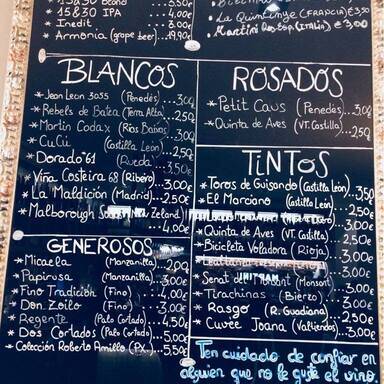 15&30 Blond ... 3,50€
15 & 30 IPA ... 4,00€
Inedit ... 3,00€
Armonia (grape beer) ... 19,90€
La Quintinye (FRANCIA) €3,50
Martini (ITALIA) €3,00
BLANCOS
* Jean Leon 3055 (Penedés) ... 3,00
* Rebels de Batea (Terra Alta) ... 2,50€
* Martin Codax (Rías Baixas) ... 3,00€
* CuCú (Castilla León) ... 2,50€
* Dorado'61 (Rueda) ... 3,50€
* Viña Costeira 68 (Ribeiro) ... 3,00€
* La Maldición (Madrid) ... 2,50€
* Malborough (Zeland)
4,00€
GENEROSOS
* Micaela (Manzanilla) ... 2,00€
* Papirusa (Manzanilla) ... 3,00€
* Fino Tradición (Fino) ... 4,00€
* Don Zoilo (Fino) ... 3,00€
* Regente (Palo Cortado) ... 3,50€
* Dos Cortados (Palo Cortado) 5,00€
* Colección Roberto Amillo (Px) ... 5,50€
ROSADOS
* Petit Caus (Penedés) ... 3,00€
* Quinta de Aves (VT. Castilla) ... 2,50€
TINTOS
* Toros de Guisando (Castilla León) 3,50
* El Marciano (Castilla León) 2,50€
* Quinta de Aves (VT. Castilla) 2,50€
* Bicicleta Voladora (Rioja) 3,00€
* Senat del Montsant (Monsant)
* Tirachinas (Bierzo) 3,00€
* Rasgo (R. Guadiana) 2,50€
* Cuvee Joana (Valtiendas) ... 3,00€
Ten cuidado de confiar en
alguien que no le guste el vino